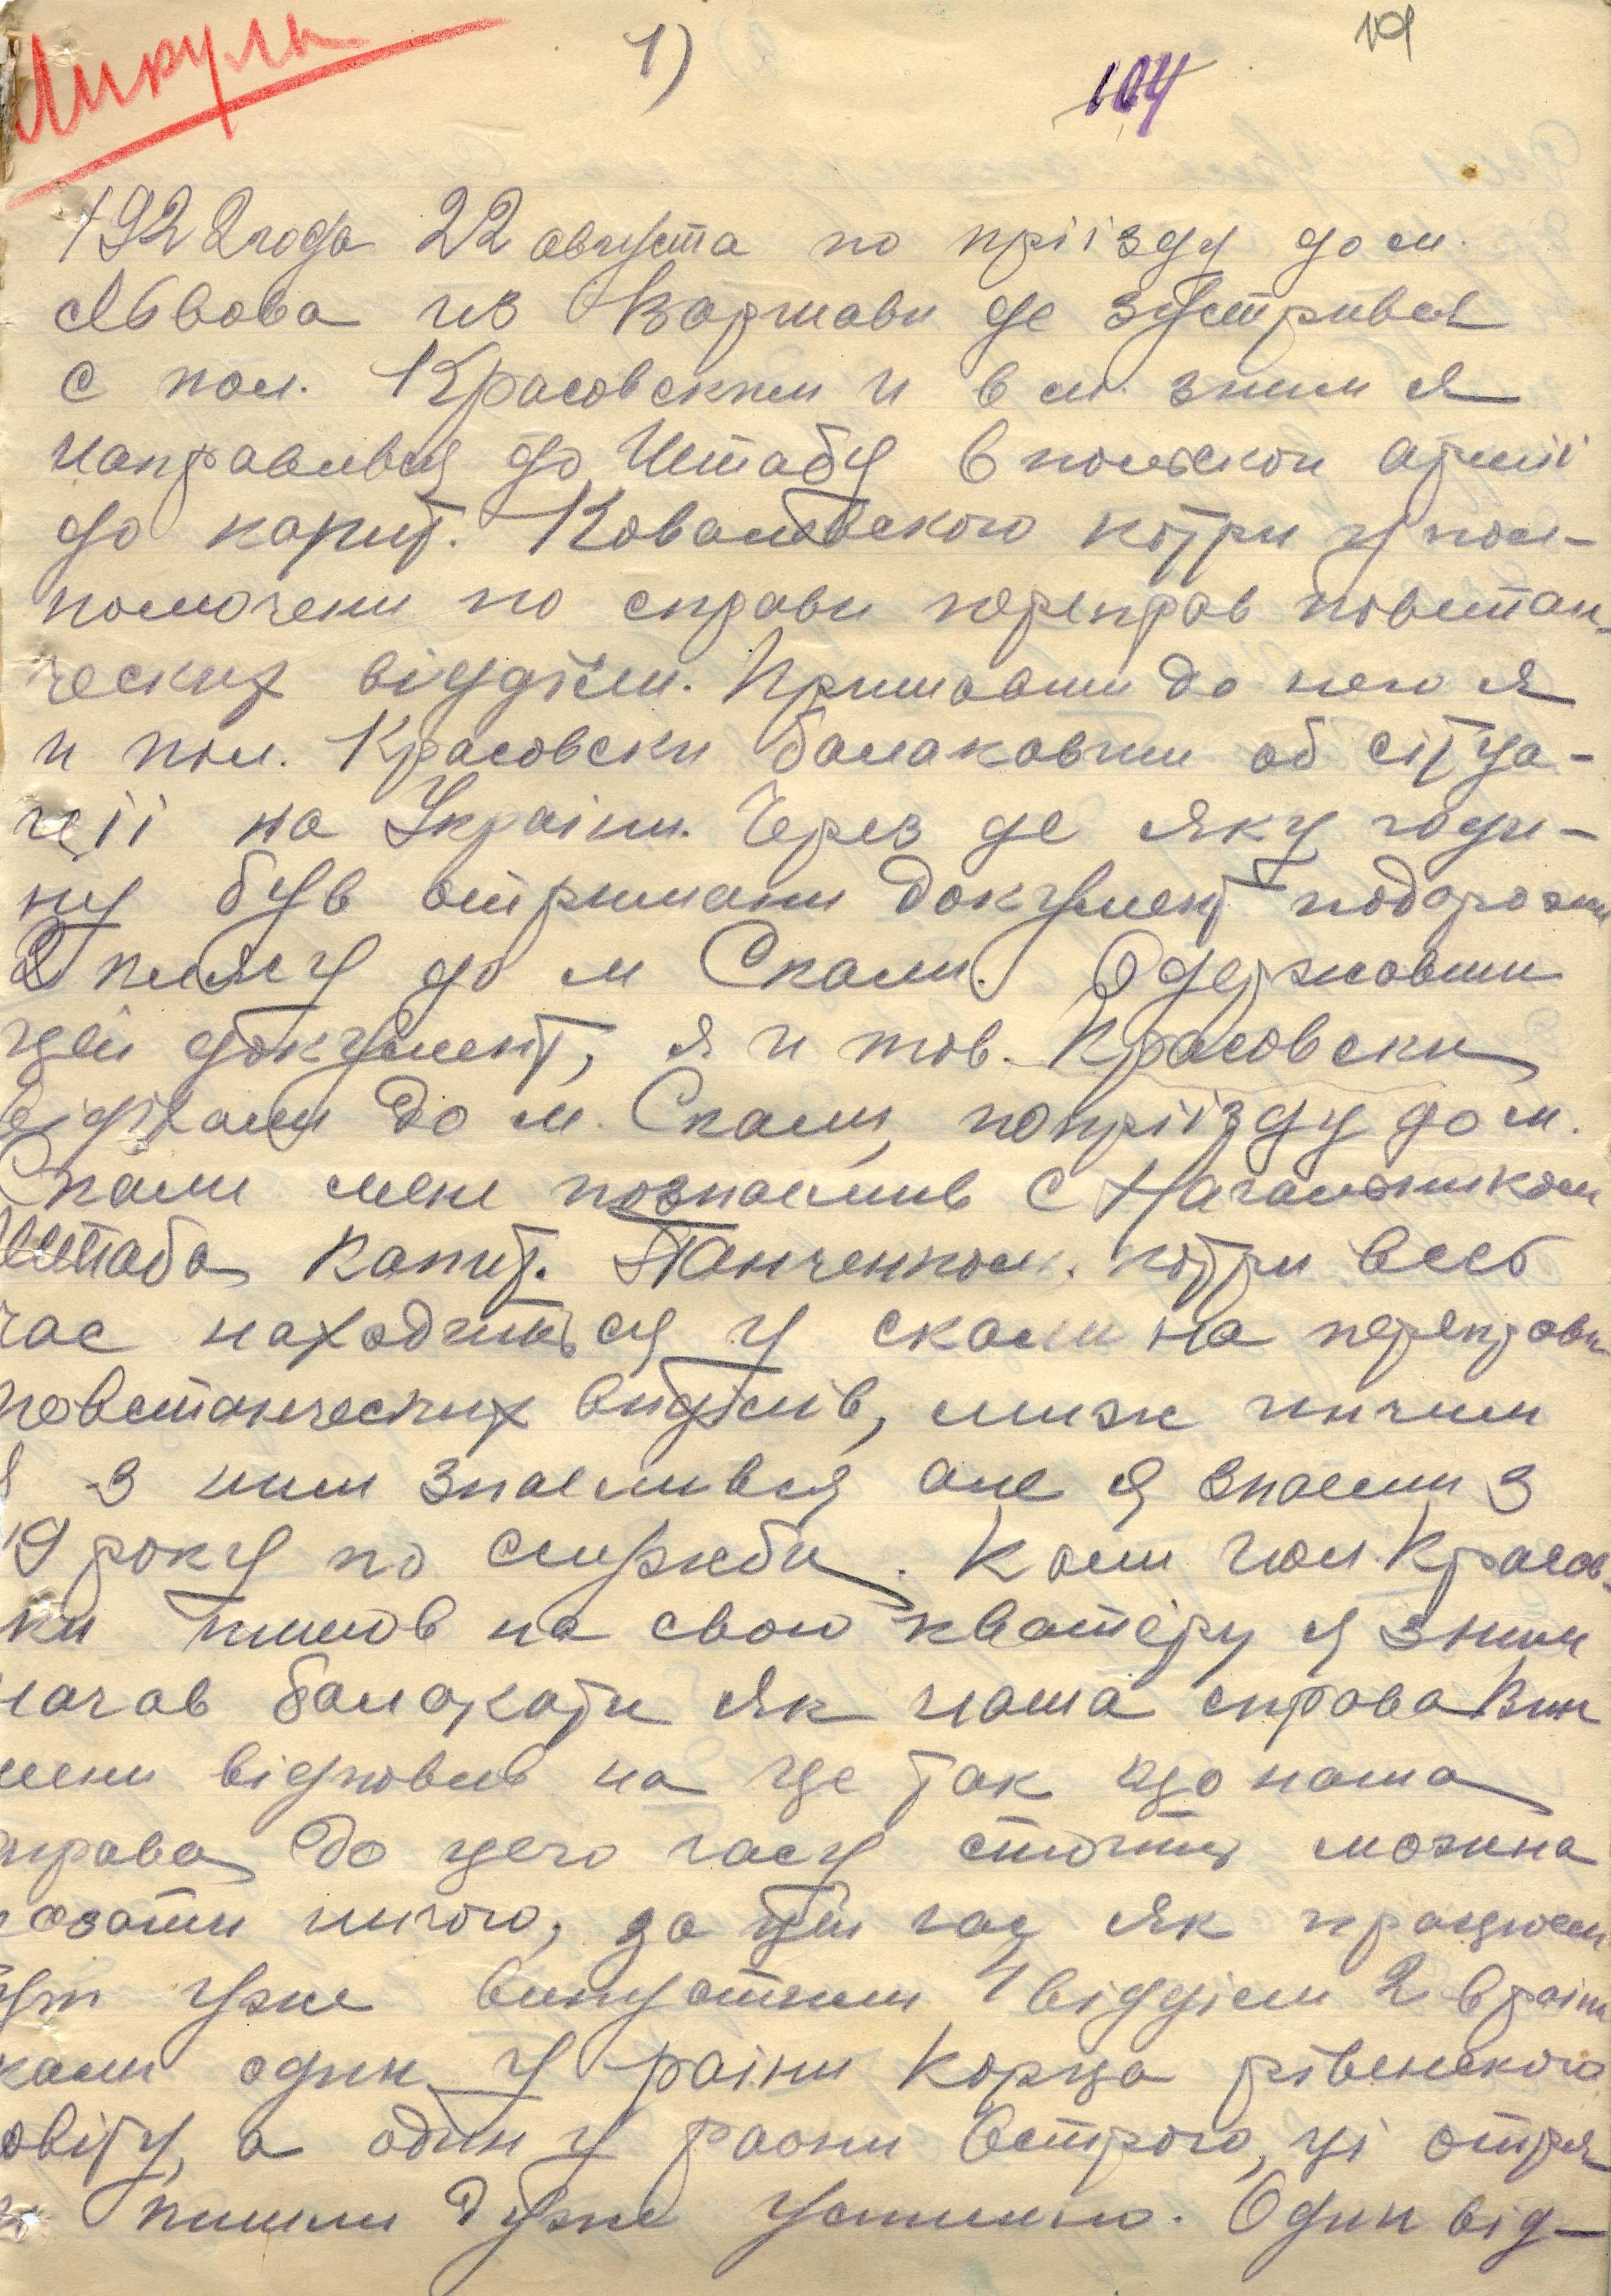 Микуль
1)
104
19
1922 года 22 августа по пріізду до м.
Львова из Варшави де зустривел
с пол. Красовским и в м. зним я
направивця до Штабу в польскои армиі
до капит. Ковальського котри упол-
помочени по справи переправ повстан-
ческих віудділи. Пришавши до него я
и пол. Красовски балакавши об сітуа-
ціі на Украіни. Через де яку годи-
ну був отримани документ подорожи
до м Скали. Одержавши
цей документ, я и тов. Красовски
відіхали до м. Скали, попріізду до м.
Скали мене познаемив с Начальником
Штаба капит. Панченком. котри весь
час находиться у скали на переправи
повстанческих виділів, миж иичим
я з ним знаемивця але я знаеми з
19 року по службы. Коли пол. Красов-
ки пишов на свою кватеру я зним
начав балакати як наша справа Вин
мени відповив на це так що наша
справа до цего часу стоить можна
казати ничого, за цей час як працюем
тут уже випустили 4 відділи 2 в раіни
скали один у раіни Корца рівенского
повіту, а один у раони Острого, ці отря
пишли дуже успишно. Один від-